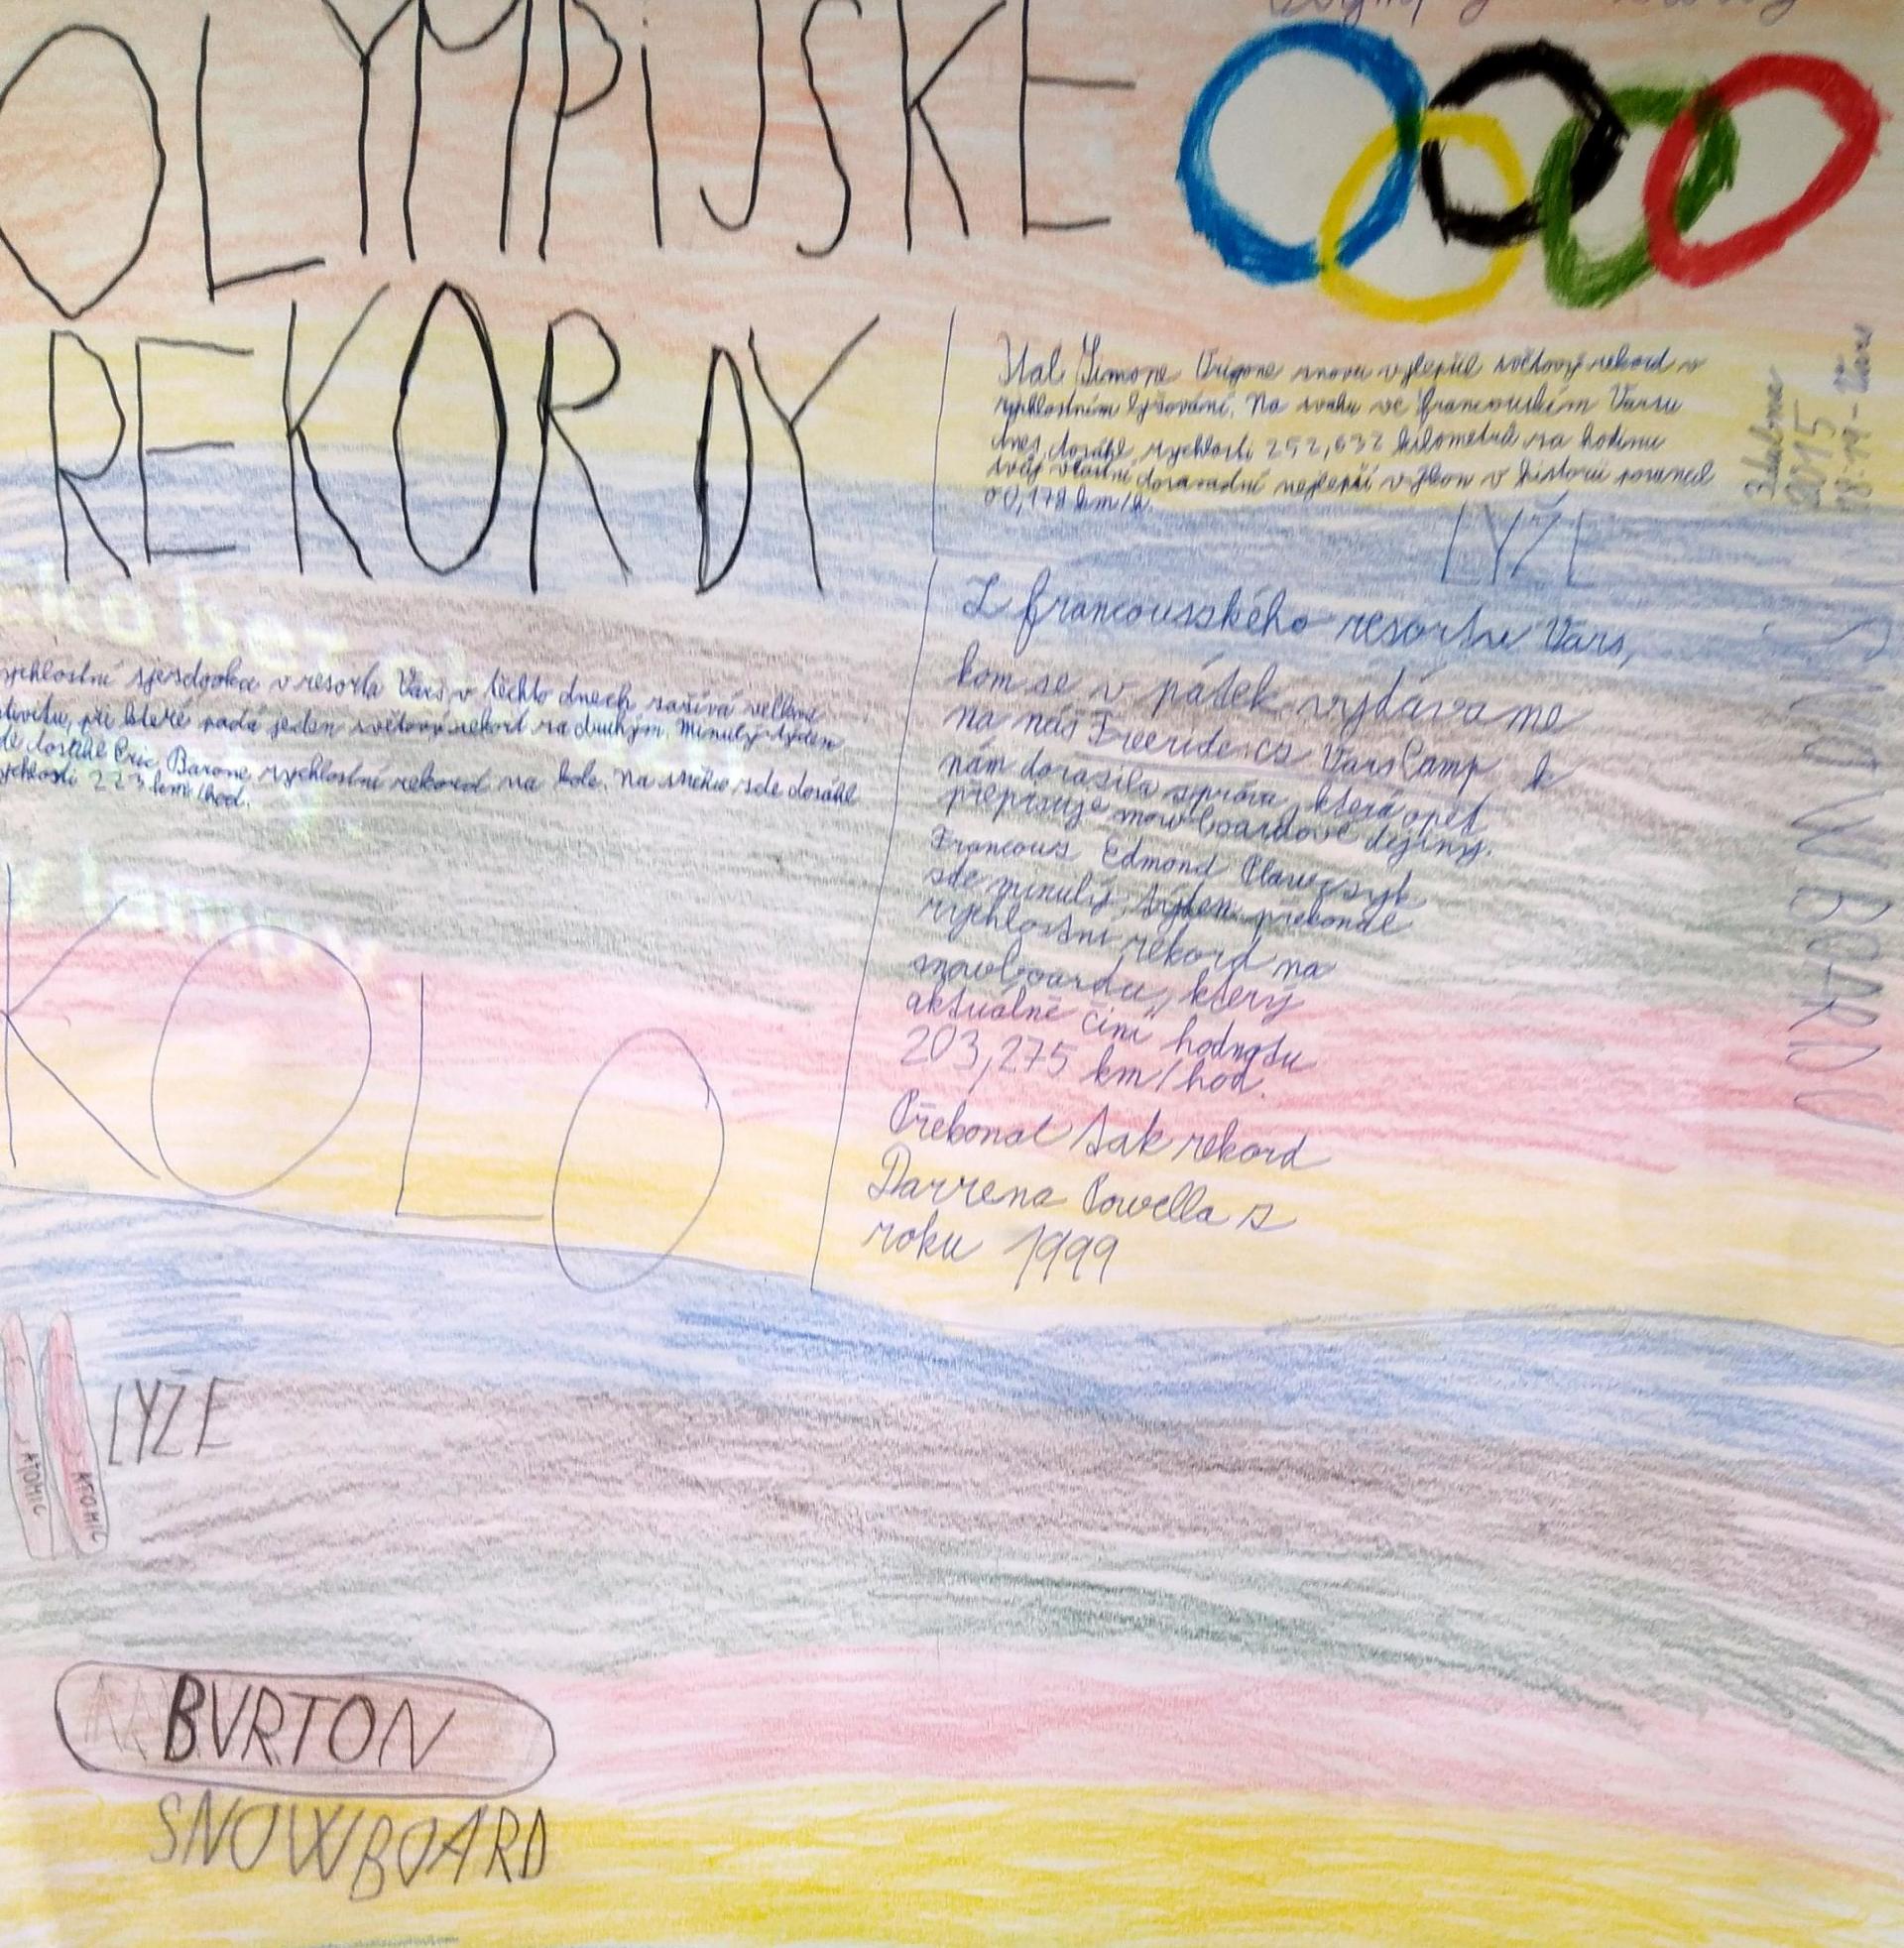 OLYMPIJSKÉ
REKORDY
Ital Simone Origone znovu vylepšil světový rekord v
rychlostním lyžování. Na svahu ve francouzském Varsu
dnes dosáhl rychlosti 252,632 kilometrů za hodinu
svůj vlastní dosavadní nejlepší výkon v historii posunul
o 0,178 km/h.
3 dubna
2015
LYŽE
rychlostní sjezdovka v resortu Vars v těchto dnech zažívá velkou
při které padá jeden světový rekort za druhým. Minulý týden
zde dosáhl Eric Barone rychlostní rekord na kole. Na sněhu zde dosáhl
rychlosti 223 km/hod.
KOLO
Z francousského resortu Vars,
kam se v pátek vydáváme
na náš Freeride.cz Vars Camp k
nám dorazila zpráva, která opět
přepisuje snowboardové dějiny.
Francouz Edmond Plawczyk
zde minulý týden překonal
rychlostní rekord na
snowboardu, který
aktuálně činí hodnotu
203,275 km/hod.
Překonal tak rekord
Darrena Powella z
roku 1999
SNOWBOARD
ATOMIC
ATOMIC
LYŽE
BURTON
SNOWBOARD